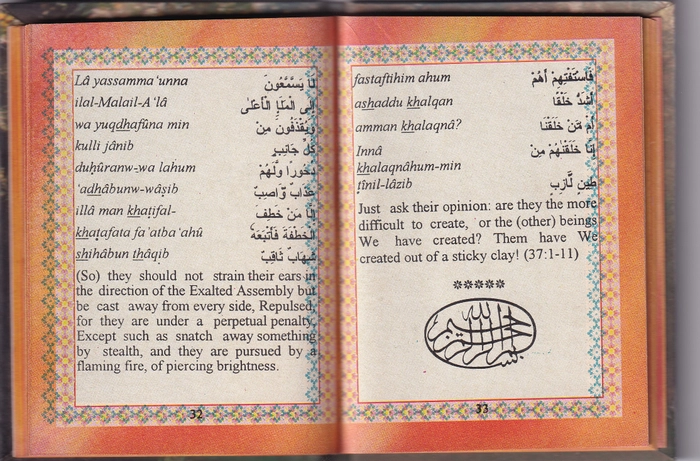 Lâ yassamma‘unna لَا يَسَّمَّعُونَ
ilal-Malail-A‘lâ إِلَى الْمَلَإِ الْأَعْلَى
wa yuqdhafûna min وَيُقْذَفُونَ مِنْ
kulli jânib كُلِّ جَانِبٍ
duḥûranw-wa lahum دُحُورًا وَلَهُمْ
‘adhâbunw-wâṣib عَذَابٌ وَّاصِبٌ
illâ man khaṭifal- إِلَّا مَنْ خَطِفَ
khaṭafata fa’atba‘ahû الْخَطْفَةَ فَأَتْبَعَهُ
shihâbun thâqib شِهَابٌ ثَاقِبٌ
(So) they should not strain their ears in
the direction of the Exalted Assembly but
be cast away from every side, Repulsed,
for they are under a perpetual penalty,
Except such as snatch away something
by stealth, and they are pursued by a
flaming fire, of piercing brightness.
32
fastaftihim ahum فَاسْتَفْتِهِمْ أَهُمْ
ashaddu khalqan أَشَدُّ خَلْقًا
amman khalaqnâ? أَم مَّنْ خَلَقْنَا
Innâ إِنَّا خَلَقْنَٰهُمْ مِنْ
khalaqnâhum-min
ṭînil-lâzib طِينٍ لَّازِبٍ
Just ask their opinion: are they the more
difficult to create, or the (other) beings
We have created? Them have We
created out of a sticky clay! (37:1-11)
*****
بسم الله الرحمن الرحيم
33